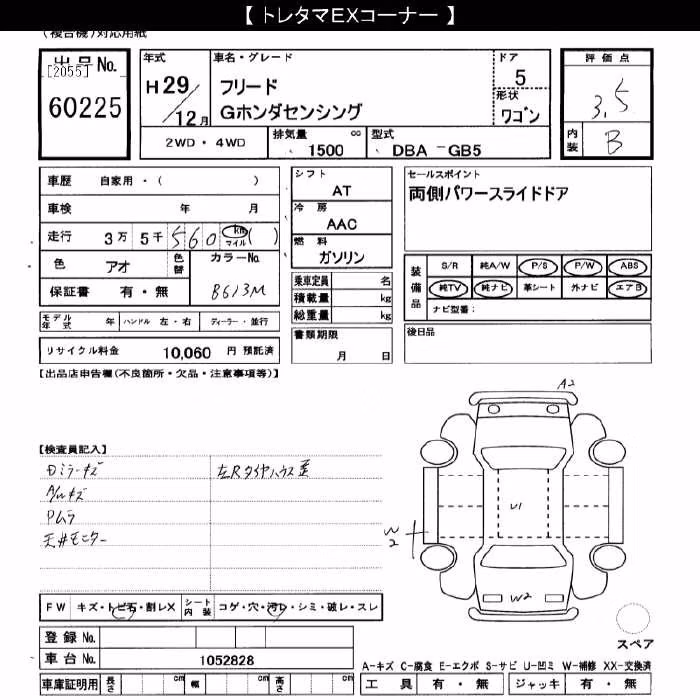 【 トレタマEXコーナー 】
(複合機)対応用紙
出品No.
[2055]
60225
年式
H29/12月
車名・グレード
フリード
Gホンダセンシング
ドア
5
形状
ワゴン
評価点
3.5
内装
B
2WD・4WD
排気量 cc
1500
型式
DBA -GB5
車歴 自家用・( )
車検 年 月
走行 3万 5千 560 km マイル ( )
色 アオ 色替 カラーNo.
保証書 有・無 B613M
シフト
AT
冷房
AAC
燃料
ガソリン
乗車定員 名
積載量 kg
総重量 kg
セールスポイント
両側パワースライドドア
装備品
S/R 純A/W P/S P/W ABS
純TV 純ナビ 革シート 外ナビ エアB
ナビ型番:
モデル年式 年 ハンドル 左・右 ディーラー・並行
リサイクル料金 10,060 円 預託済
書類期限
月 日
後日品
【出品店申告欄(不良箇所・欠品・注意事項等)】
【検査員記入】
Dミラーキズ 左Rタイヤハウス歪
A/Wキズ
Pムラ
天井モニター
A2
U1
W2
W2
FW キズ・トビ石・割レX シート内装 コゲ・穴・汚レ・シミ・破レ・スレ
登録No.
車台No. 1052828
車庫証明用 長さ cm 幅 cm 高さ cm
スペア
A-キズ C-腐食 E-エクボ S-サビ U-凹ミ W-補修 XX-交換済
工具 有・無 ジャッキ 有・無